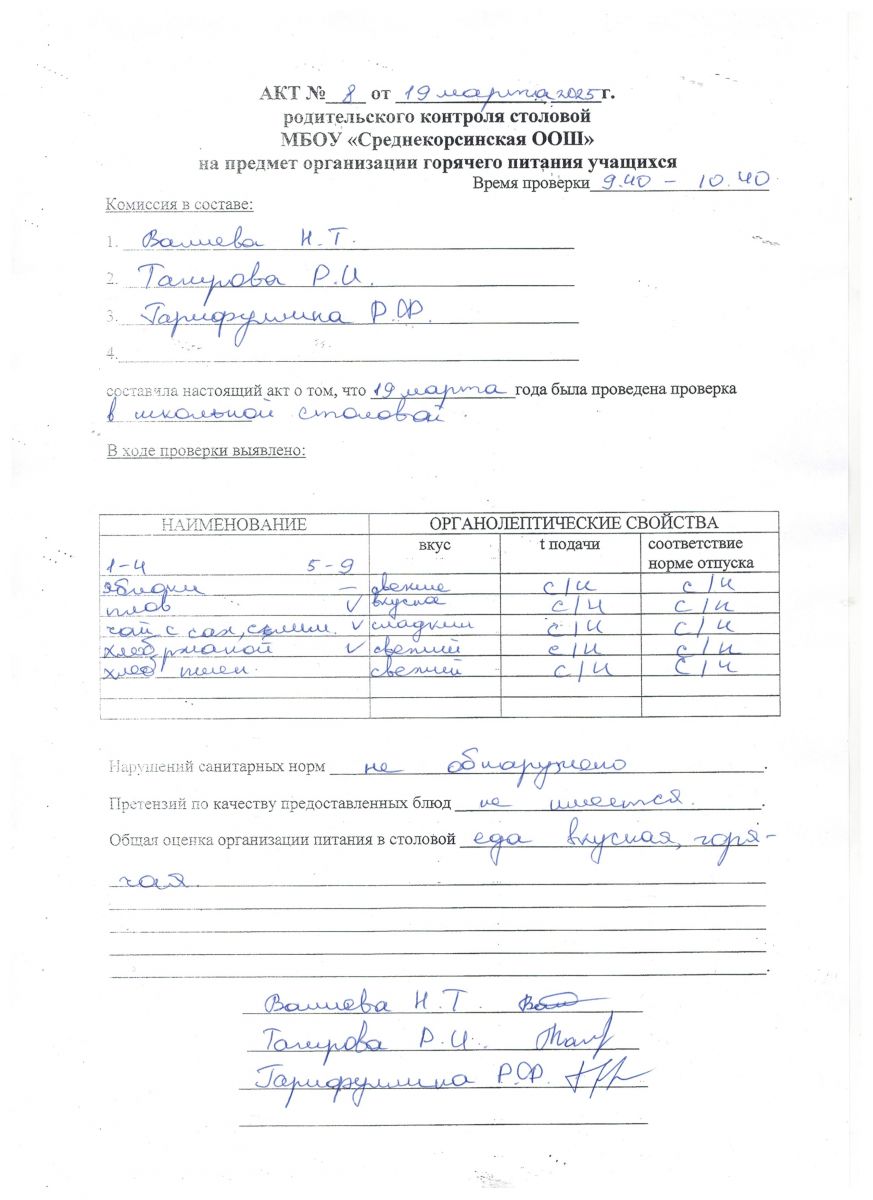 АКТ № 8 от 19 марта 2025г.
родительского контроля столовой
МБОУ «Среднекорсинская ООШ»
на предмет организации горячего питания учащихся
Время проверки 9.40 - 10.40
Комиссия в составе:
1. Валиева Н.Т.
2. Тагирова Р.И.
3. Гарифуллина Р.Ф.
4.
составила настоящий акт о том, что 19 марта года была проведена проверка
в школьной столовой.
В ходе проверки выявлено:
НАИМЕНОВАНИЕ ОРГАНОЛЕПТИЧЕСКИЕ СВОЙСТВА
вкус t подачи соответствие норме отпуска
1-4 5-9
яблоки — свежие с/и с/и
плов ✓ вкусно с/и с/и
чай с сах, с ✓ сладкий с/и с/и
хлеб ржаной ✓ свежий с/и с/и
хлеб пшен. свежий с/и с/и
Нарушений санитарных норм не обнаружено.
Претензий по качеству предоставленных блюд не имеется.
Общая оценка организации питания в столовой еда вкусная, горя-
чая.
Валиева Н.Т.
Тагирова Р.И.
Гарифуллина Р.Ф.